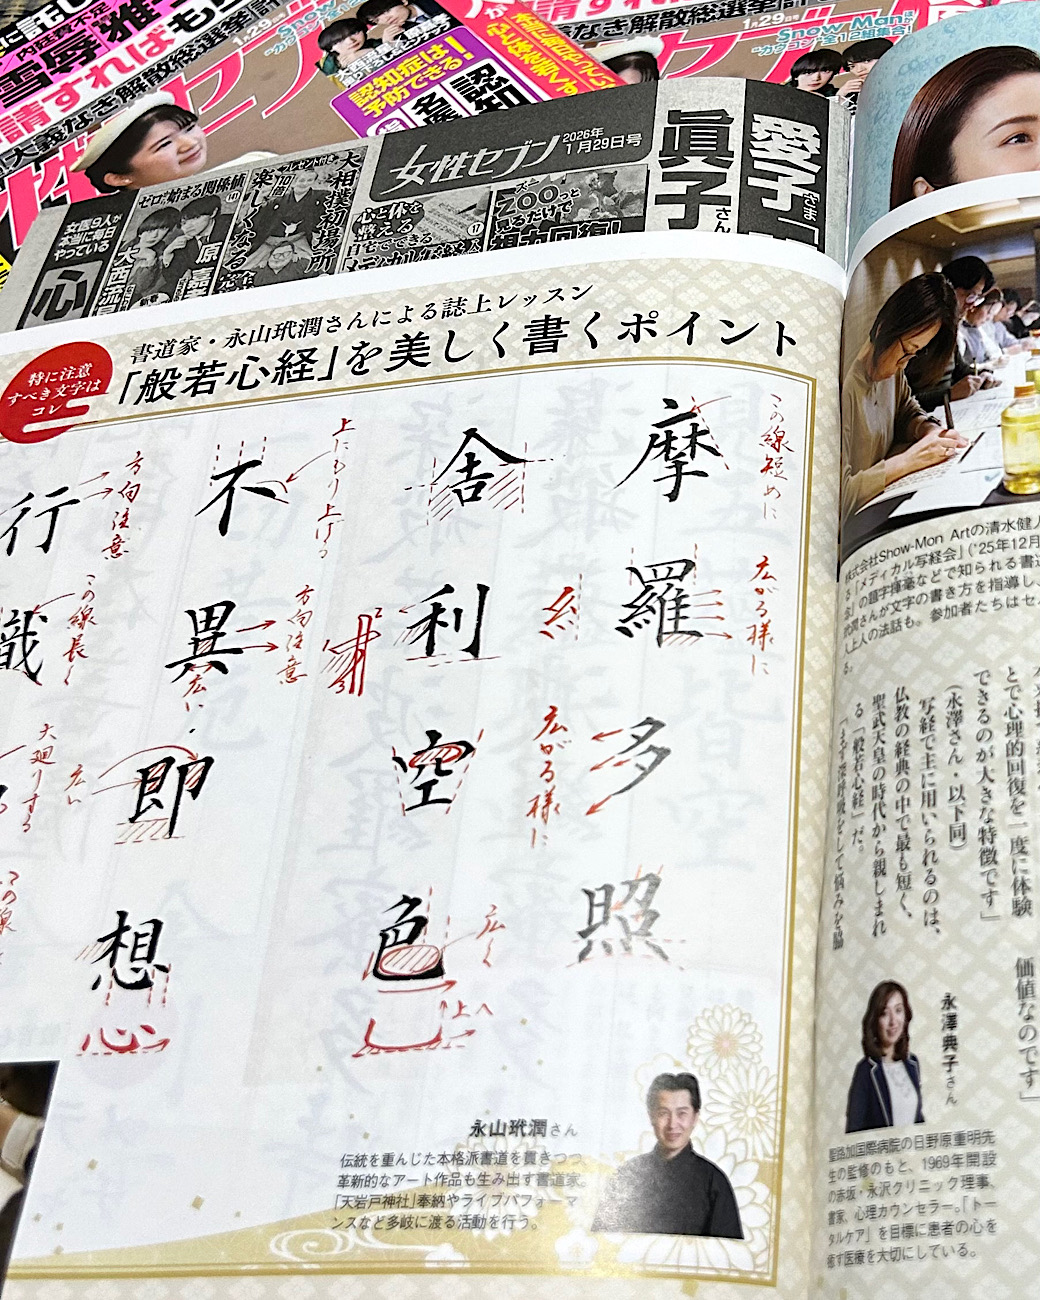 内廷費不足
雪辱
大義なき解散総選挙
1月29日号
Snow Man
"カウコン"全12組集合!
認知症は!
予防できる!
女性セブン
2026年
1月29日号
愛子さま
眞子さん
大相撲初場所
楽しくなる
ゼロから始まる関係値
心と体を
整える
自宅でできる
ZOOっと
見るだけで
視力回復!
女医9人が
本当に毎日
やっている
心
特に注意
すべき文字は
コレ
書道家・永山玳潤さんによる誌上レッスン
「般若心経」を美しく書くポイント
摩
この線短めに
羅
広がる様に
多
広がる様に
照
舎
利
空
色
広く
上へ
不
上にもり上げる
異
方向注意
広い
即
広い
想
心
行
方向注意
識
この線長く
大廻りする
この線
永山玳潤さん
伝統を重んじた本格派書道を貫きつつ、
革新的なアート作品も生み出す書道家。
「天岩戸神社」奉納やライブパフォーマ
ンスなど多岐に渡る活動を行う。
株式会社Show-Mon Artの清水健人
る「メディカル写経会」('25年12月
の題字揮毫などで知られる書道
玳潤さんが文字の書き方を指導し、
人上人の法話も。参加者たちはセ
る。
とで心理的回復を一度に体験
できるのが大きな特徴です」
(永澤さん・以下同)
写経で主に用いられるのは、
仏教の経典の中で最も短く、
聖武天皇の時代から親しまれ
る「般若心経」だ。
「まず深呼吸をして悩みを脇
価値なのです」
永澤典子さん
聖路加国際病院の日野原重明先
生の監修のもと、1969年開設
の赤坂・永沢クリニック理事、
書家、心理カウンセラー。「トー
タルケア」を目標に患者の心を
癒す医療を大切にしている。